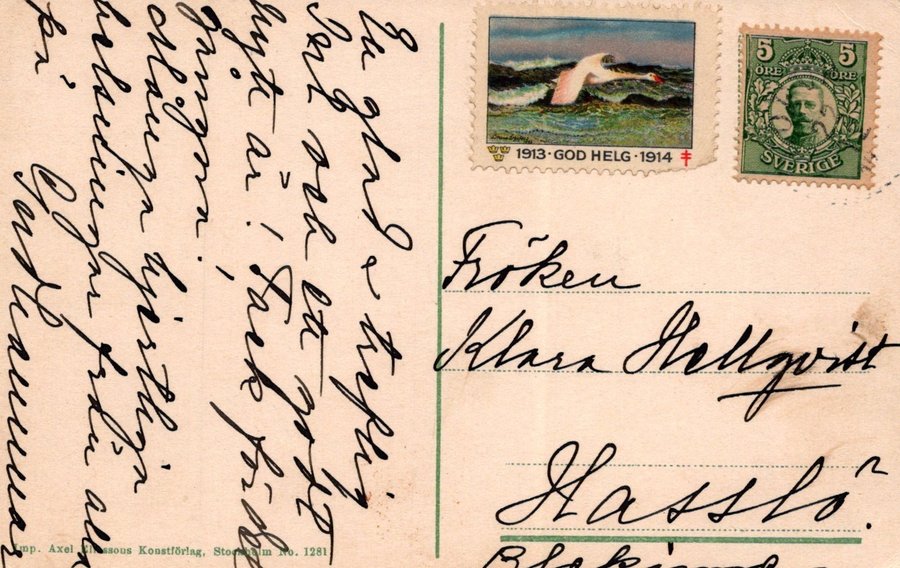 En glad & treflig
Jul och ett godt
nytt år! Tack för
många hjertliga
helsningar från alla
på
1913 · GOD HELG · 1914
5 5
ÖRE ÖRE
SVERIGE
Fröken
Klara Hellqvist
Hasslö
Imp. Axel Eliassons Konstförlag, Stockholm No. 1281